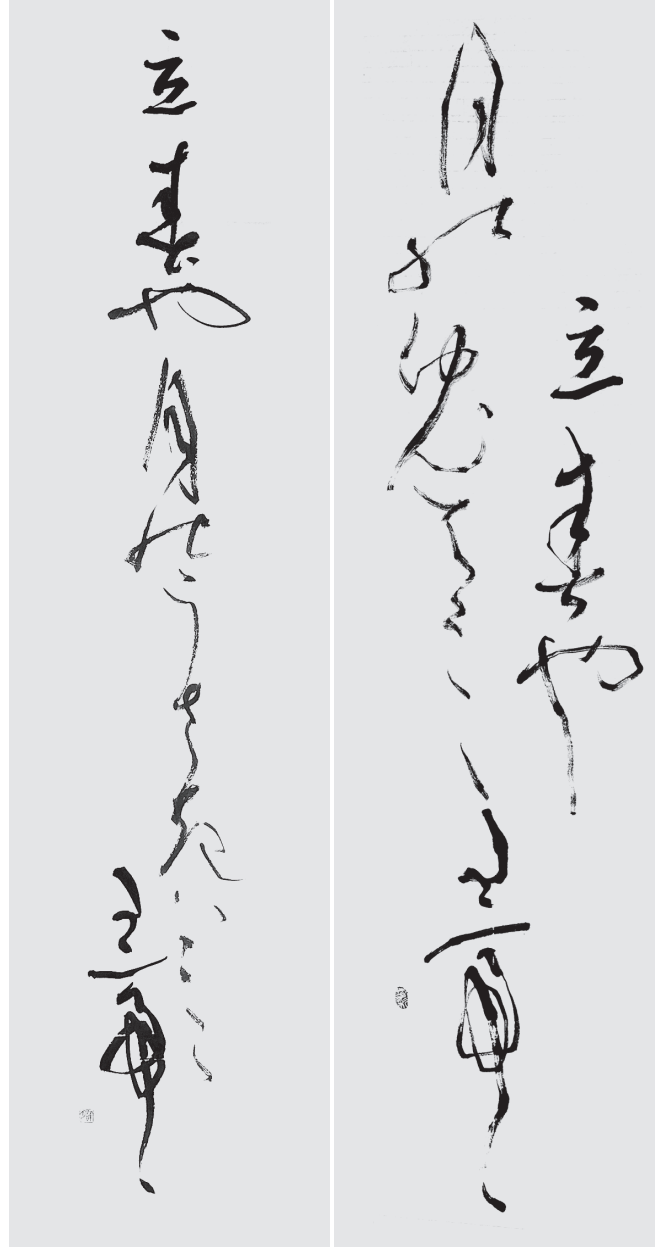 立春や
月の兎はミゝ立帝ゝ
立春や月のうさきハミゝ
立帝ゝ